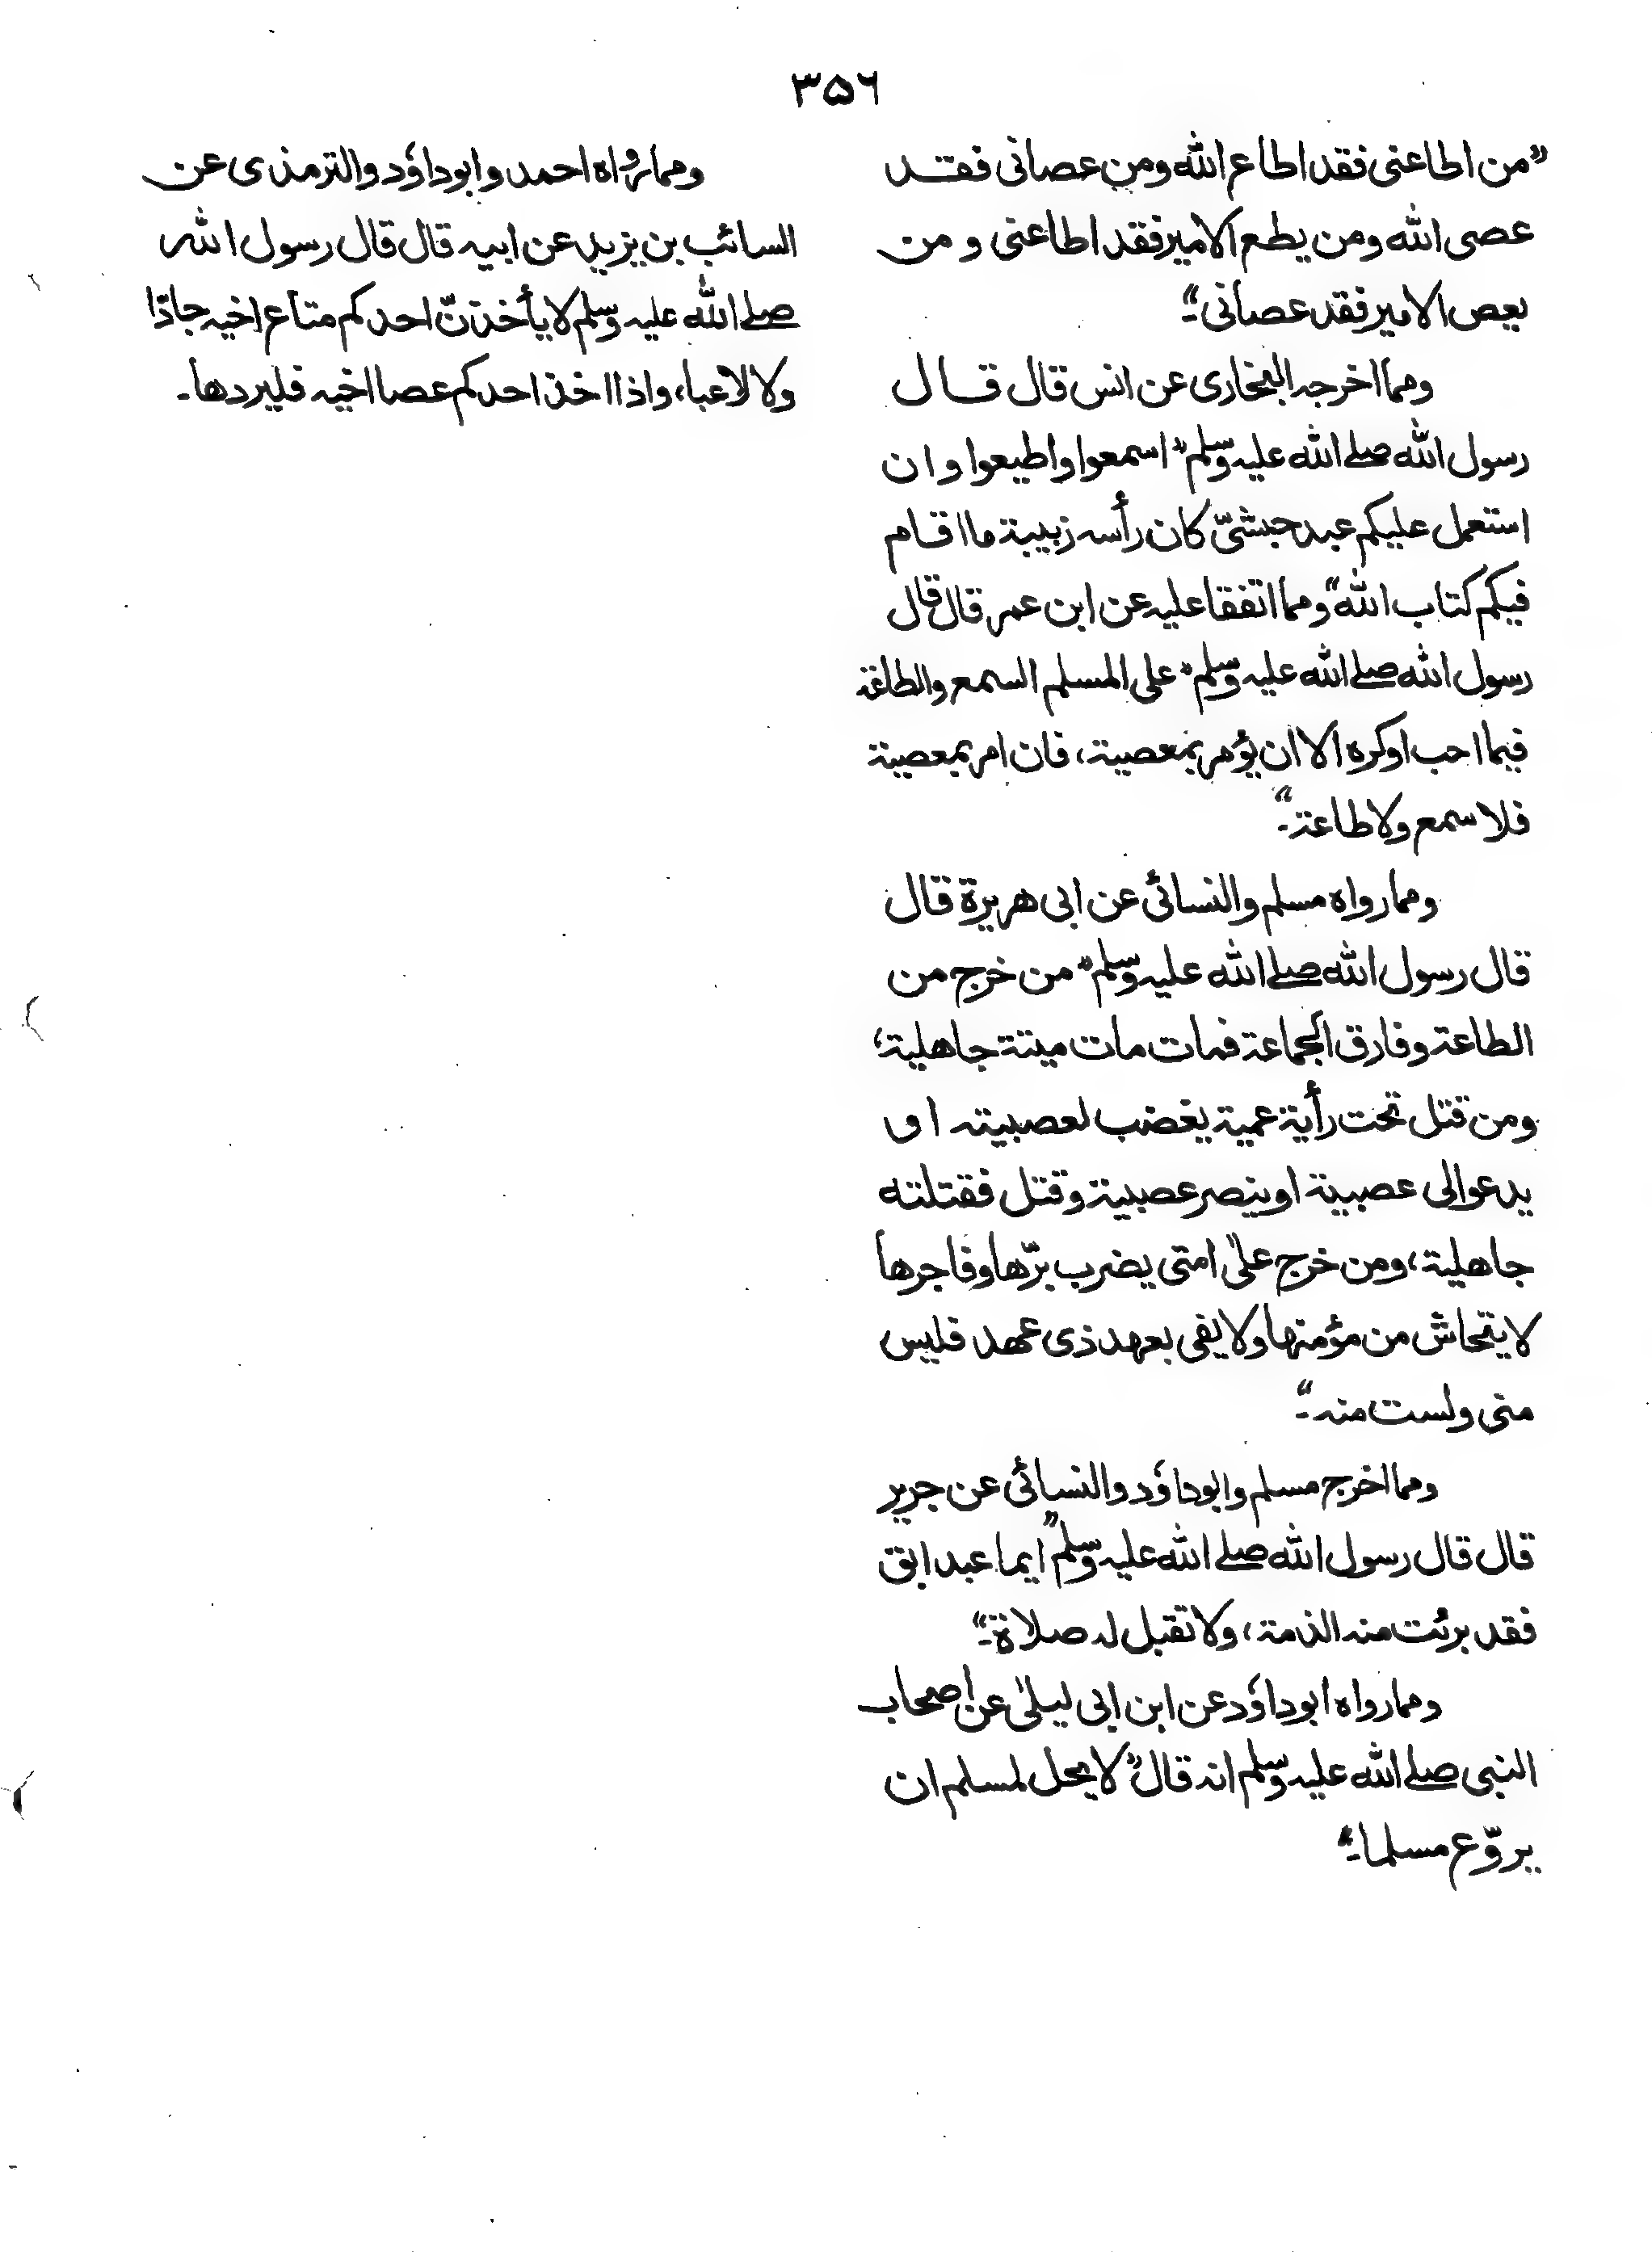 ۳۵۶
”من اطاعنی فقد اطاع الله ومن عصانی فقد
عصی الله ومن یطع الامیر فقد اطاعنی و من
یعص الامیر فقد عصانی“۔
ومما اخرجہ البخاری عن انس قال قال
رسول الله صلے الله علیہ وسلم ”اسمعوا واطیعوا وان
استعمل علیکم عبد حبشیّ کان رأسہ زبیبۃ ما اقام
فیکم کتاب الله“ ومما اتفقا علیہ عن ابن عمر قال قال
رسول الله صلے الله علیہ وسلم ”علی المسلم السمع والطاعۃ
فیما احب اوکرہ الا ان یؤمر بمعصیۃ، فان امر بمعصیۃ
فلا سمع ولا طاعۃ“۔
ومما رواہ مسلم والنسائی عن ابی ھریرۃ قال
قال رسول الله صلے الله علیہ وسلم ”من خرج من
الطاعۃ وفارق الجماعۃ فمات مات میتۃ جاھلیۃ،
ومن قتل تحت رأیۃ عمیۃ یغضب لعصبیتہ او
یدعو الی عصبیۃ او ینصر عصبیۃ وقتل فقتلتہ
جاھلیۃ، ومن خرج علیٰ امتی یضرب برّھا وفاجرھا
لا یتحاش من مؤمنھا ولا یفی بعھد ذی عھد فلیس
منی ولست منہ“۔
ومما اخرج مسلم وابوداؤد والنسائی عن جریر
قال قال رسول الله صلے الله علیہ وسلم ”ایما عبد ابق
فقد برئت منہ الذمۃ، ولا تقبل لہ صلاۃ“۔
ومما رواہ ابوداؤد عن ابن ابی لیلیٰ عن اصحاب
النبی صلے الله علیہ وسلم انہ قال ”لا یحل لمسلم ان
یروّع مسلما“۔
ومما رواہ احمد وابوداؤد والترمذی عن
السائب بن یزید عن ابیہ قال قال رسول الله
صلے الله علیہ وسلم لا یأخذنّ احدکم متاع اخیہ جادّا
ولا لاعبا، واذا اخذ احدکم عصا اخیہ فلیردھا۔